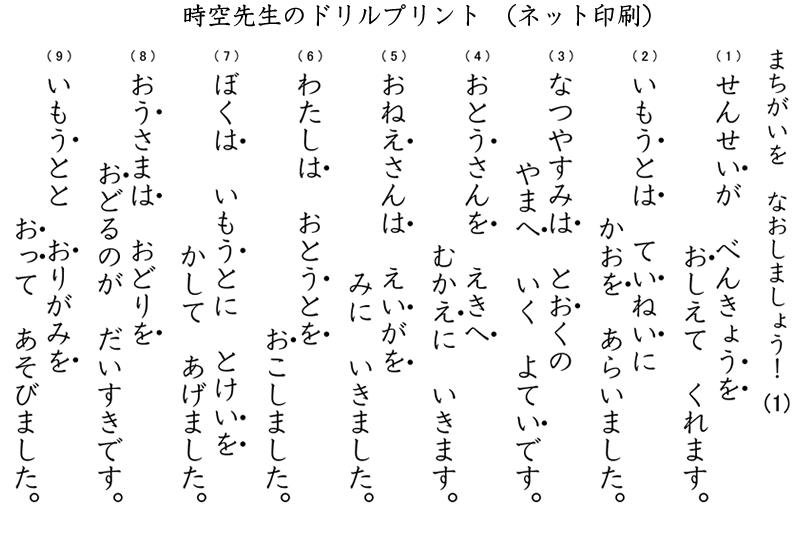 時空先生のドリルプリント （ネット印刷）
まちがいを なおしましょう！ (1)
(1) せんせいが べんきょうを
おしえて くれます。
(2) いもうとは ていねいに
かおを あらいました。
(3) なつやすみは とおくの
やまへ いく よていです。
(4) おとうさんを えきへ
むかえに いきます。
(5) おねえさんは えいがを
みに いきました。
(6) わたしは おとうとを
おこしました。
(7) ぼくは いもうとに とけいを
かして あげました。
(8) おうさまは おどりを
おどるのが だいすきです。
(9) いもうとと おりがみを
おって あそびました。